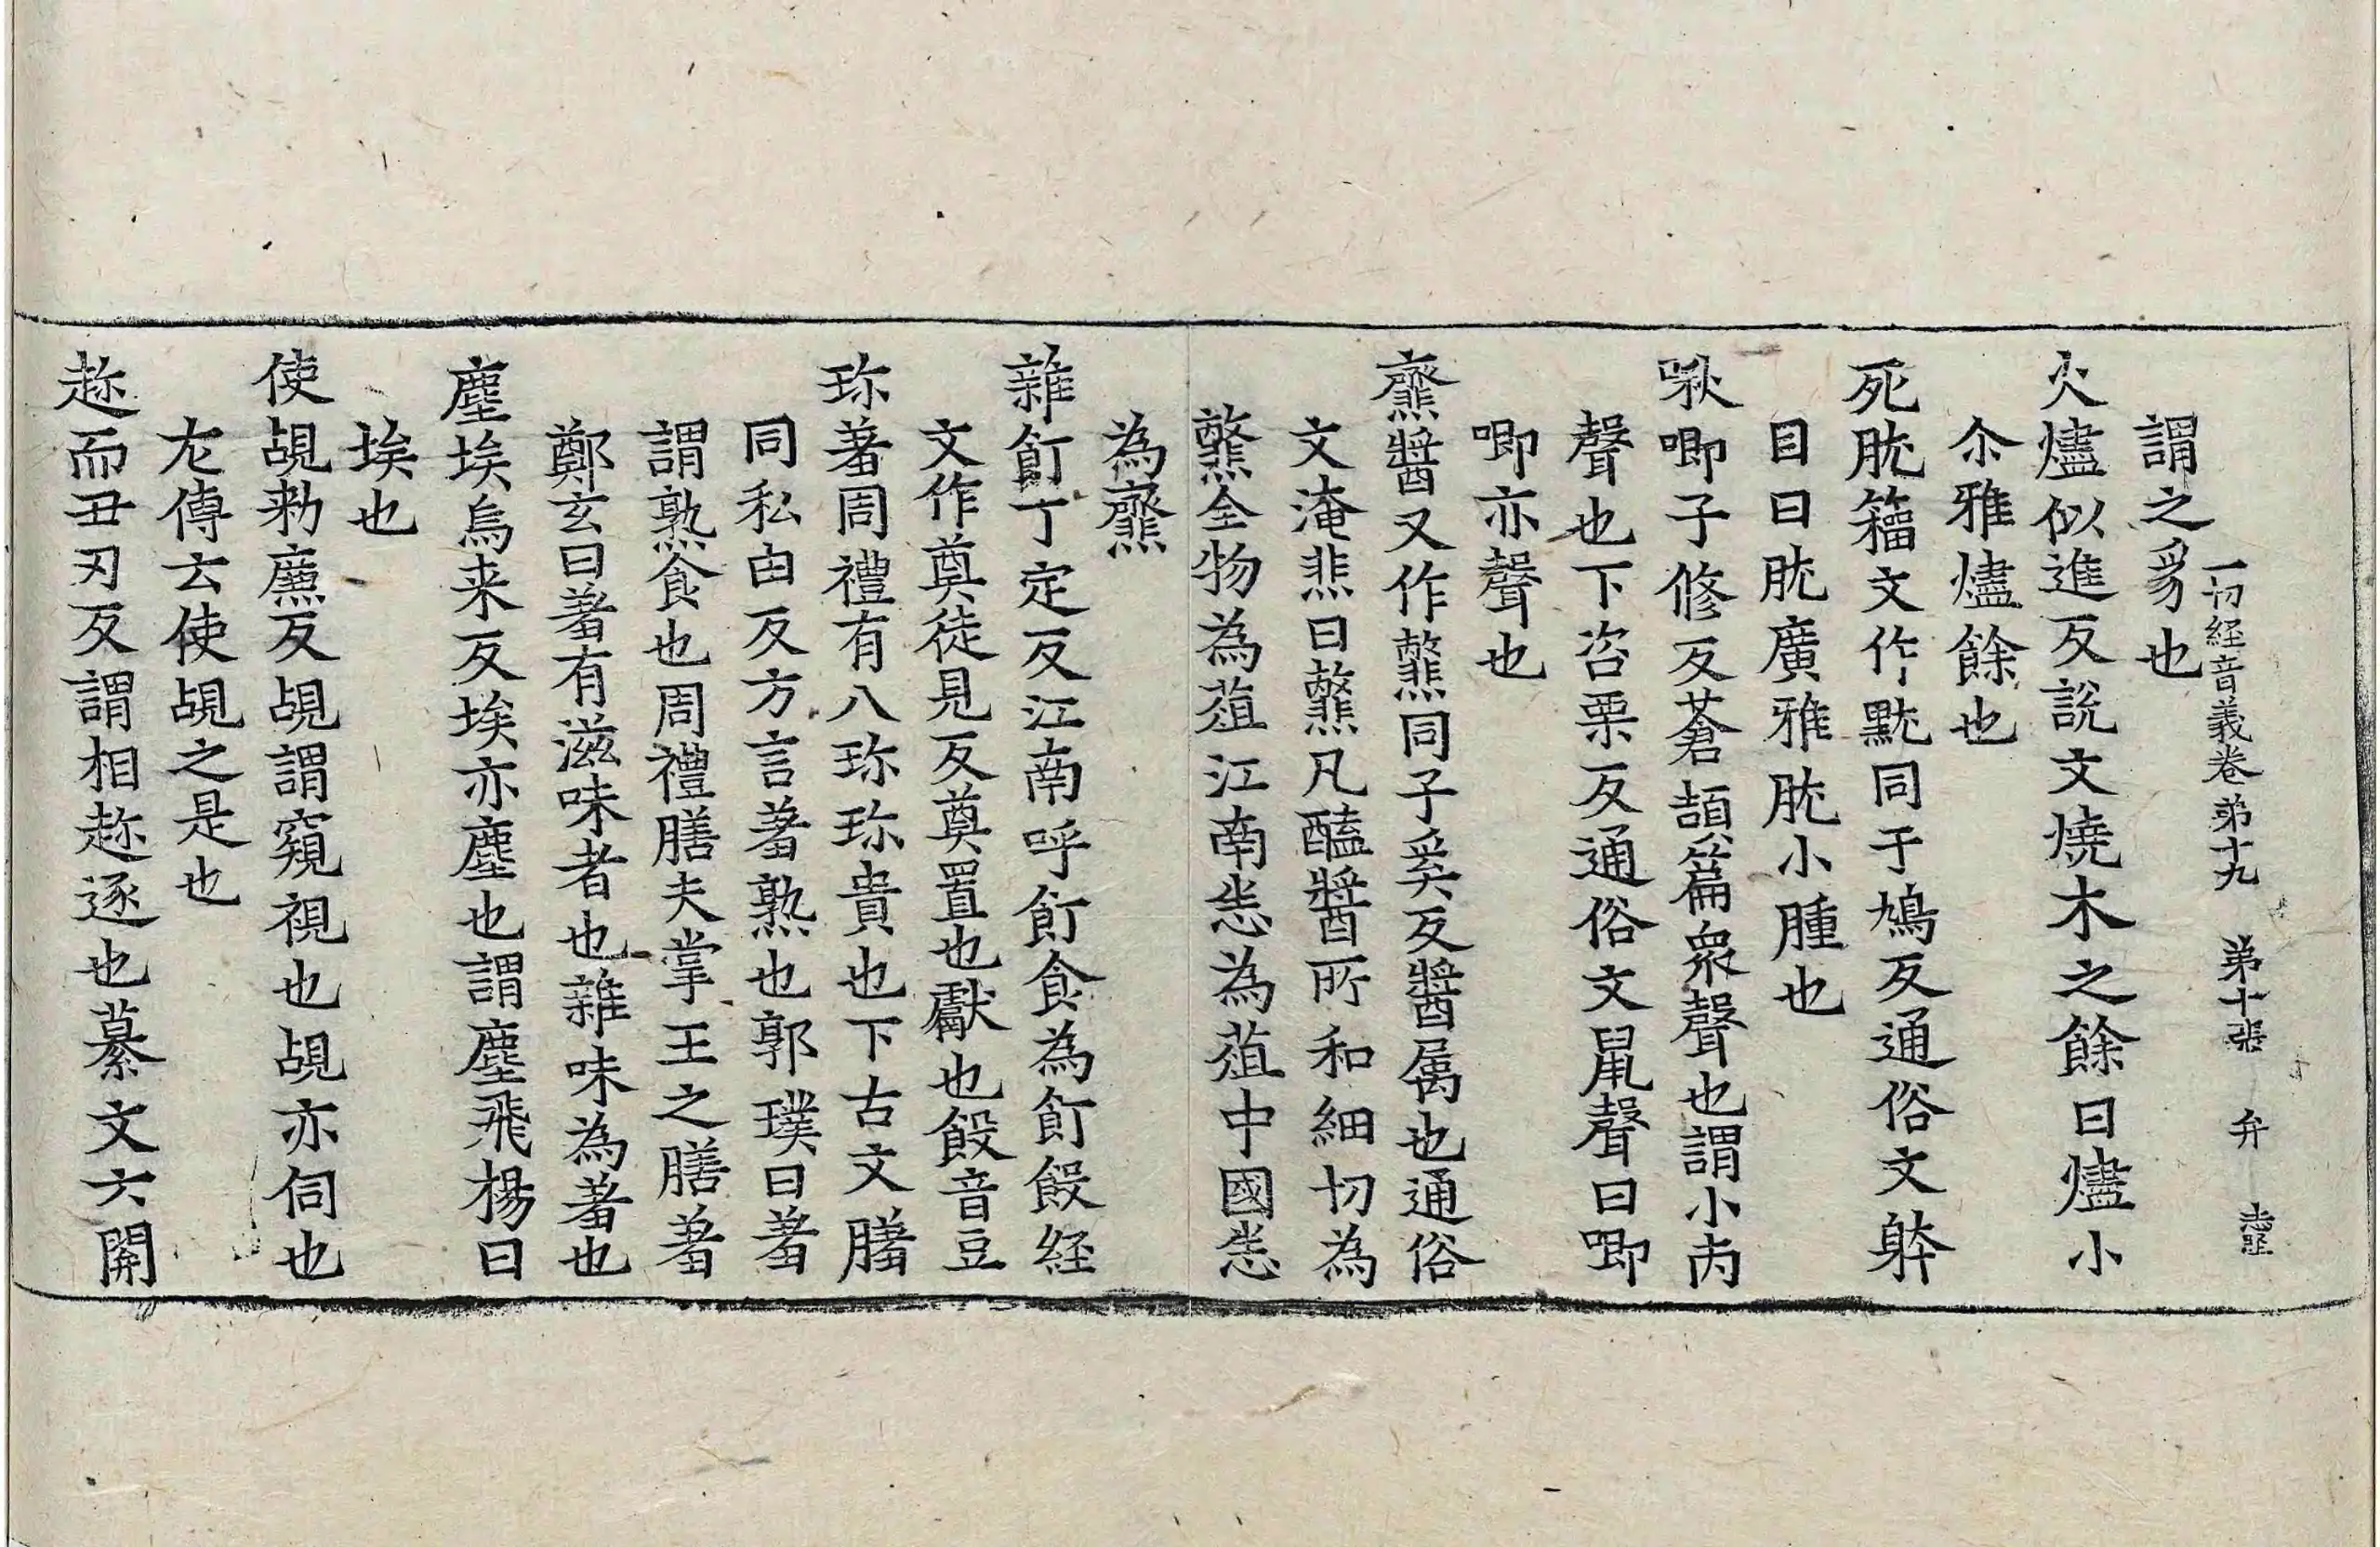 一切経音義卷弟十九 弟十張 弁
謂之豸也
火燼似進反說文燒木之餘曰燼小
尒雅燼餘也
死肬籕文作黕同于鳩反通俗文躰
目曰肬廣雅肬小腫也
啾唧子修反蒼頡篇衆聲也謂小
聲也下咨栗反通俗文鼠聲曰唧
唧亦聲也
虀醬又作韲同子奚反醬属也通俗
文淹韭曰韲凡醯醬所和細切為
韲全物為葅江南悉為葅中國悉
為虀
雜飣丁定反江南呼飣食為飣餖経
文作奠徒見反奠置也獻也餖音豆
珎著周禮有八珎珎貴也下古文𦠄
同私由反方言著熟也郭璞曰著
謂熟食也周禮膳夫掌王之膳著
鄭玄曰著有滋味者也雜味為著也
塵埃烏来反埃亦塵也謂塵飛楊曰
埃也
使覘勑廉反覘謂窺視也覘亦伺也
左傳云使覘之是也
趂而丑刃反謂相趂逐也纂文六開